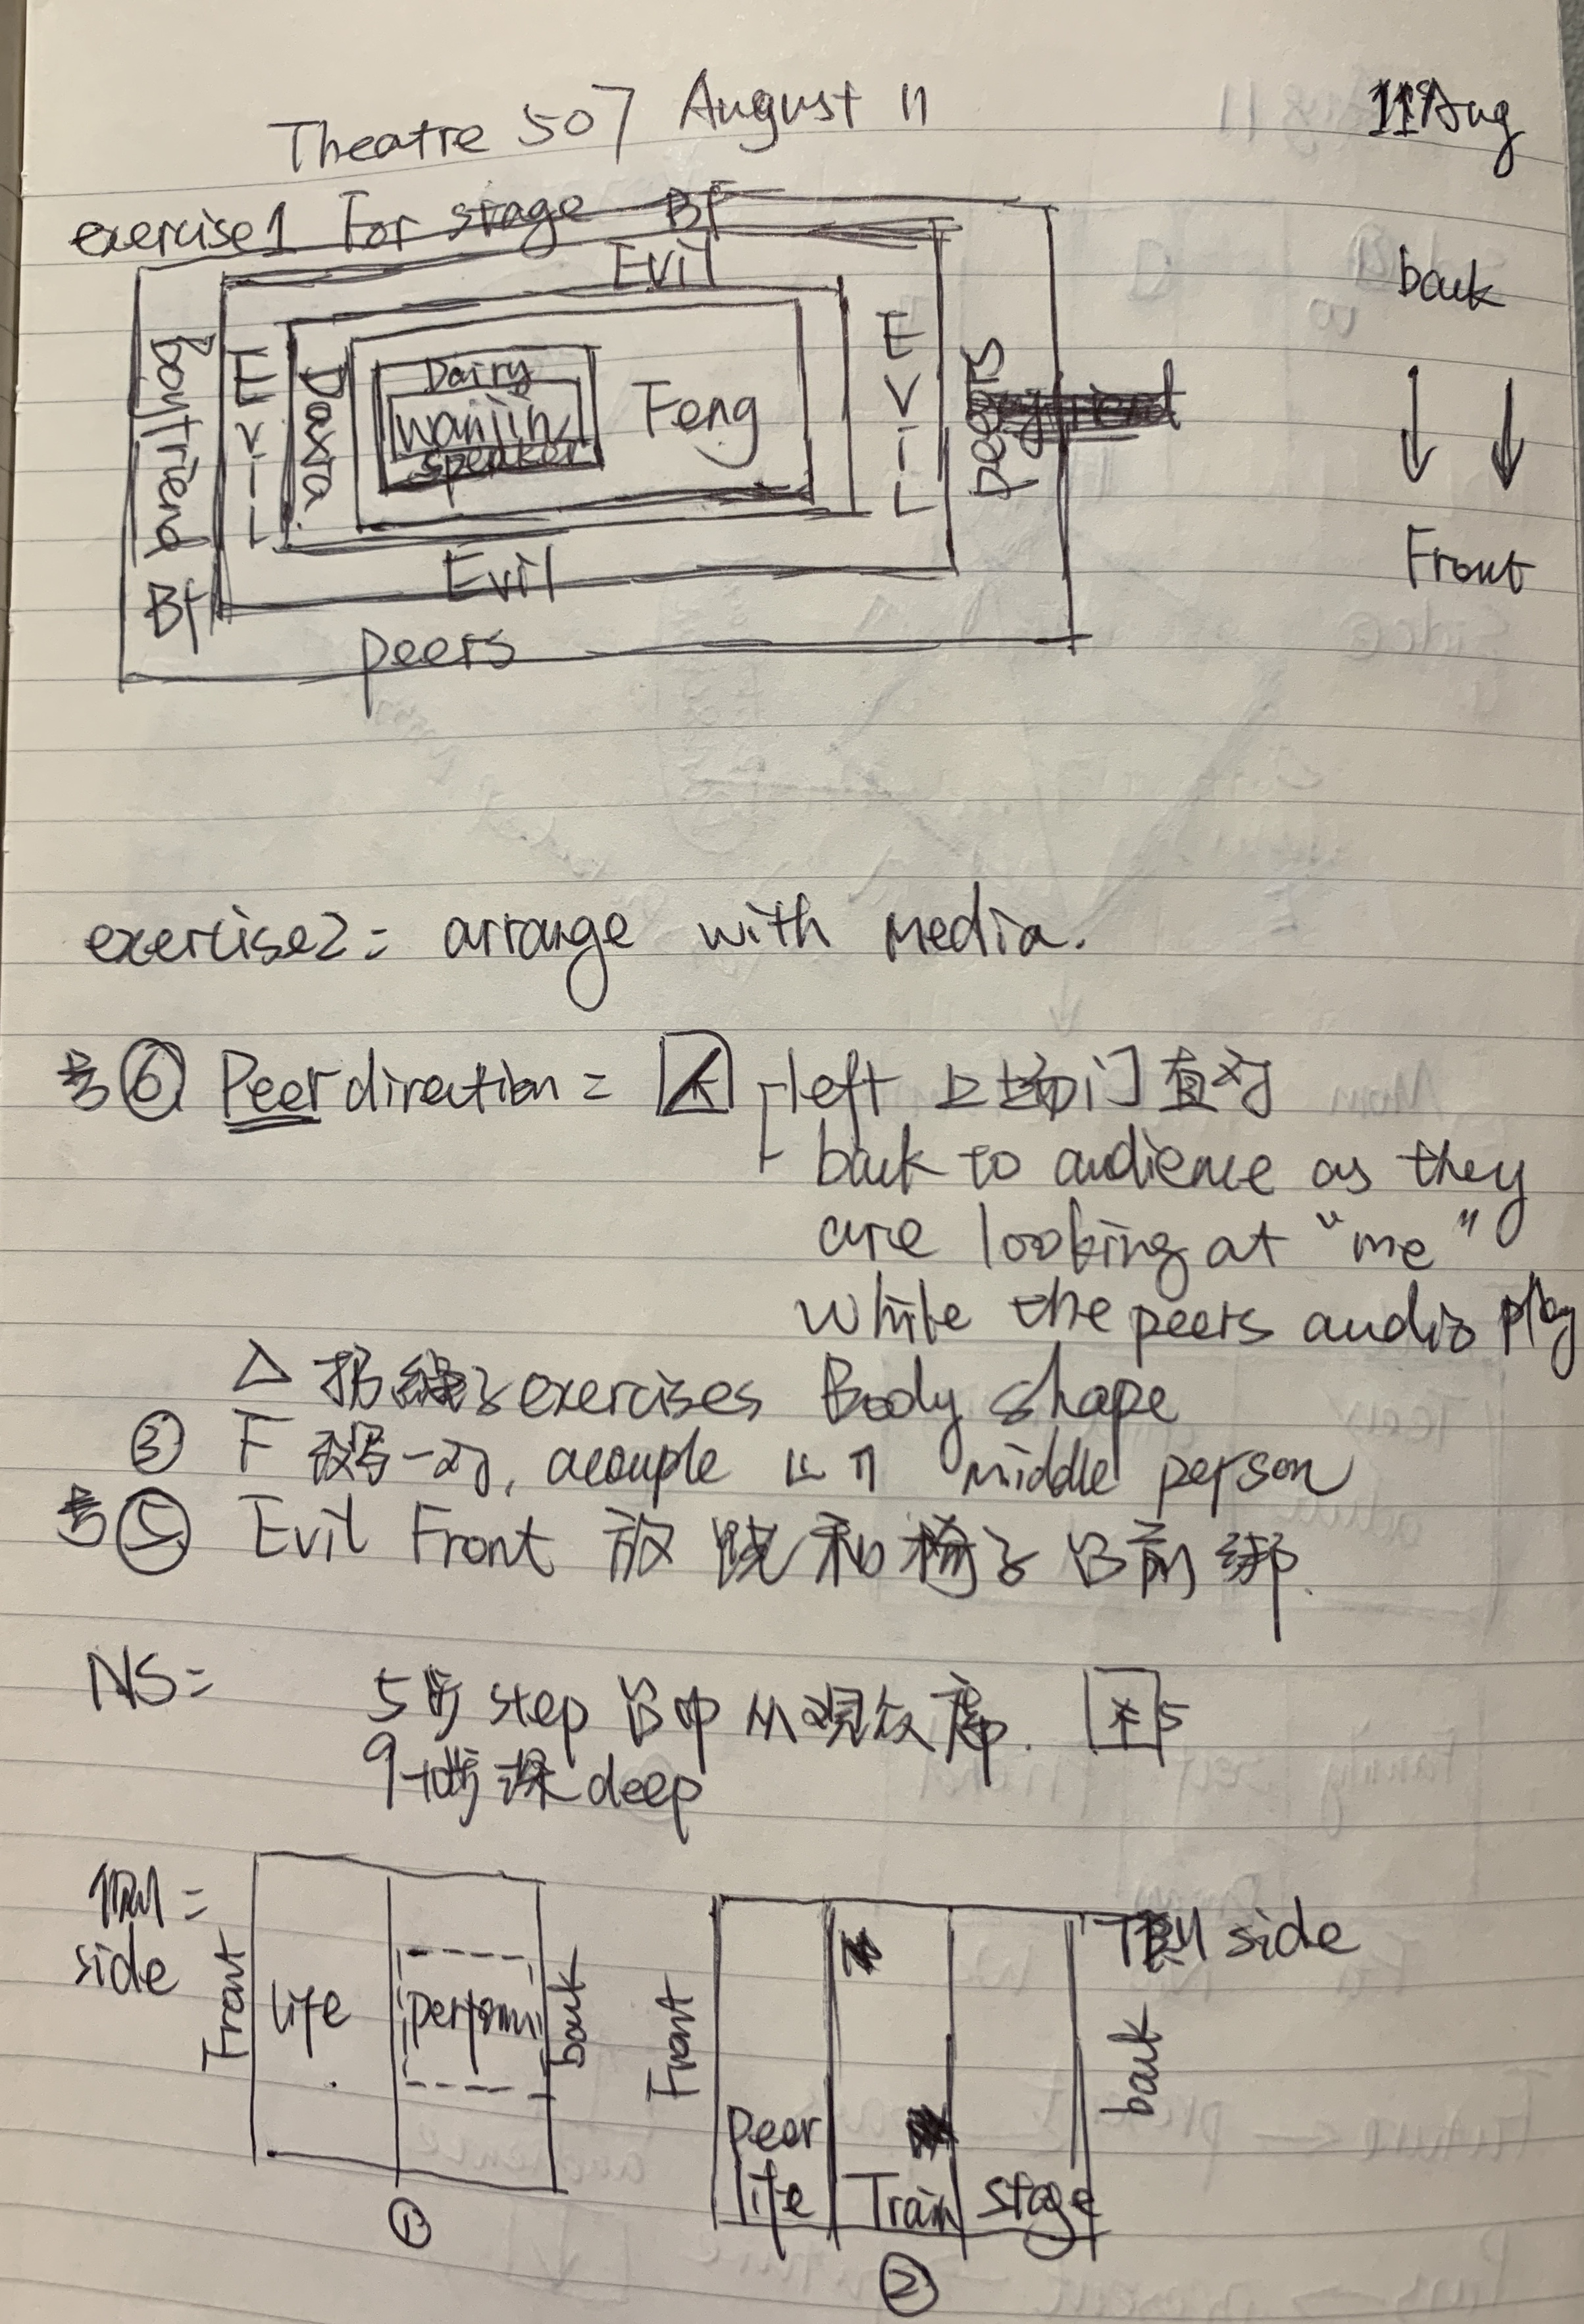 Theatre 507 August 11
11 Aug
exercise1 For stage Bf
Evil
back
Boyfriend
Evil
Daxia
Dairy
wanjin
speaker
Feng
EViL
peers
Front
Evil
Bf
peers
exercise2: arrange with media.
⑥ Peer direction = left 上场门直对
back to audience as they
are looking at "me"
while the peers audio play
△ exercises Body shape
③ F 一对, acouple middle person
⑤ Evil Front 放 凳和椅子 绑.
NS= 5步 step 从观众席. 5
9步深 deep
side
Front
life
perform
back
①
Front
Peer
life
Train
stage
side
back
②